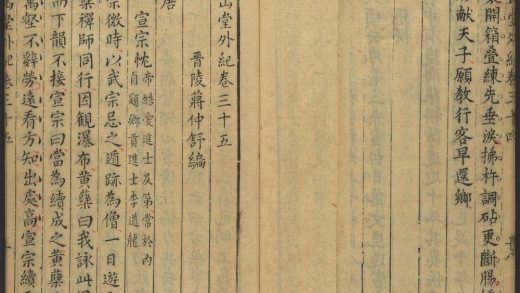 堂外紀卷三十四
開箱疊練先垂淚拂杵調砧更斷腸
獻天子願教行客早還鄉
山堂外紀卷三十五
晉陵蔣仲舒編
唐
宣宗忱
帝酷愛進士及第常於內
自題鄉貢進士李道龍
宗微時以武宗忌之遁跡為僧一日遊
蘗禪師同行因觀瀑布黃蘗曰我詠此
而下韻不接宣宗曰當為續成之黃蘗
萬壑不辭勞遠看方知出處高宣宗續
堂外紀卷三十五